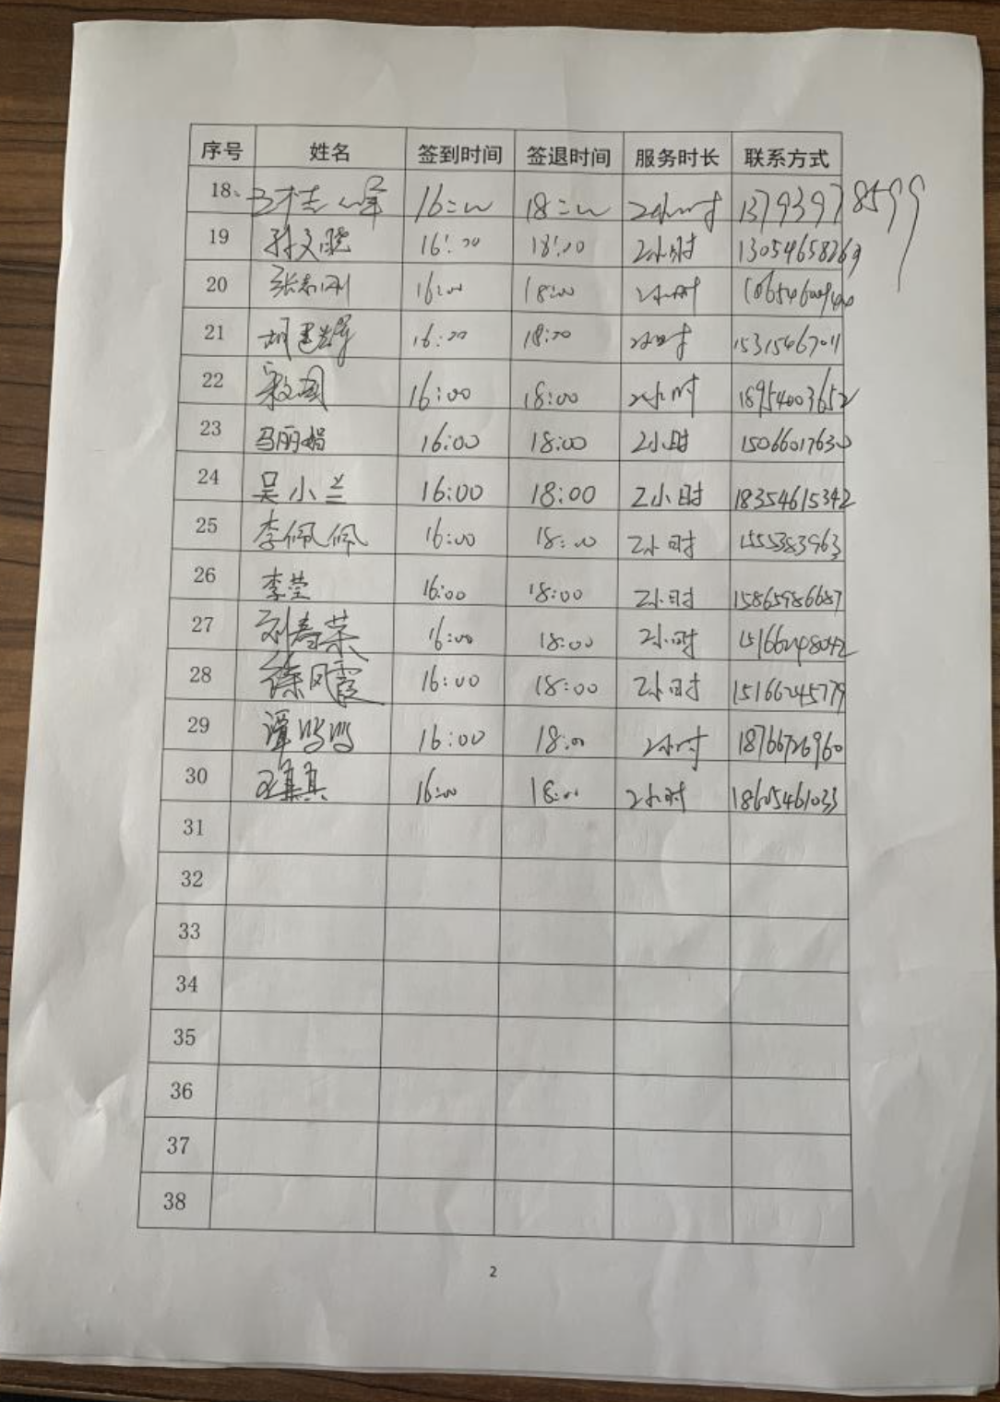 序号 姓名 签到时间 签退时间 服务时长 联系方式
18、 16:00 18:00 2小时 13793978599
19 孙文晓 16:00 18:00 2小时 13054658769
20 张志刚 16:00 18:00 2小时
21 16:00 18:00 2小时 15315467011
22 16:00 18:00 2小时 18954003652
23 马丽娟 16:00 18:00 2小时 15066017630
24 吴小兰 16:00 18:00 2小时 18354615342
25 李佩佩 16:00 18:00 2小时 1555383963
26 李莹 16:00 18:00 2小时 15865986687
27 刘春荣 16:00 18:00 2小时 15166248042
28 徐凤霞 16:00 18:00 2小时 15166245779
29 谭鸣鸣 16:00 18:00 2小时 18766726960
30 王真真 16:00 18:00 2小时 18605461033
31
32
33
34
35
36
37
38
2